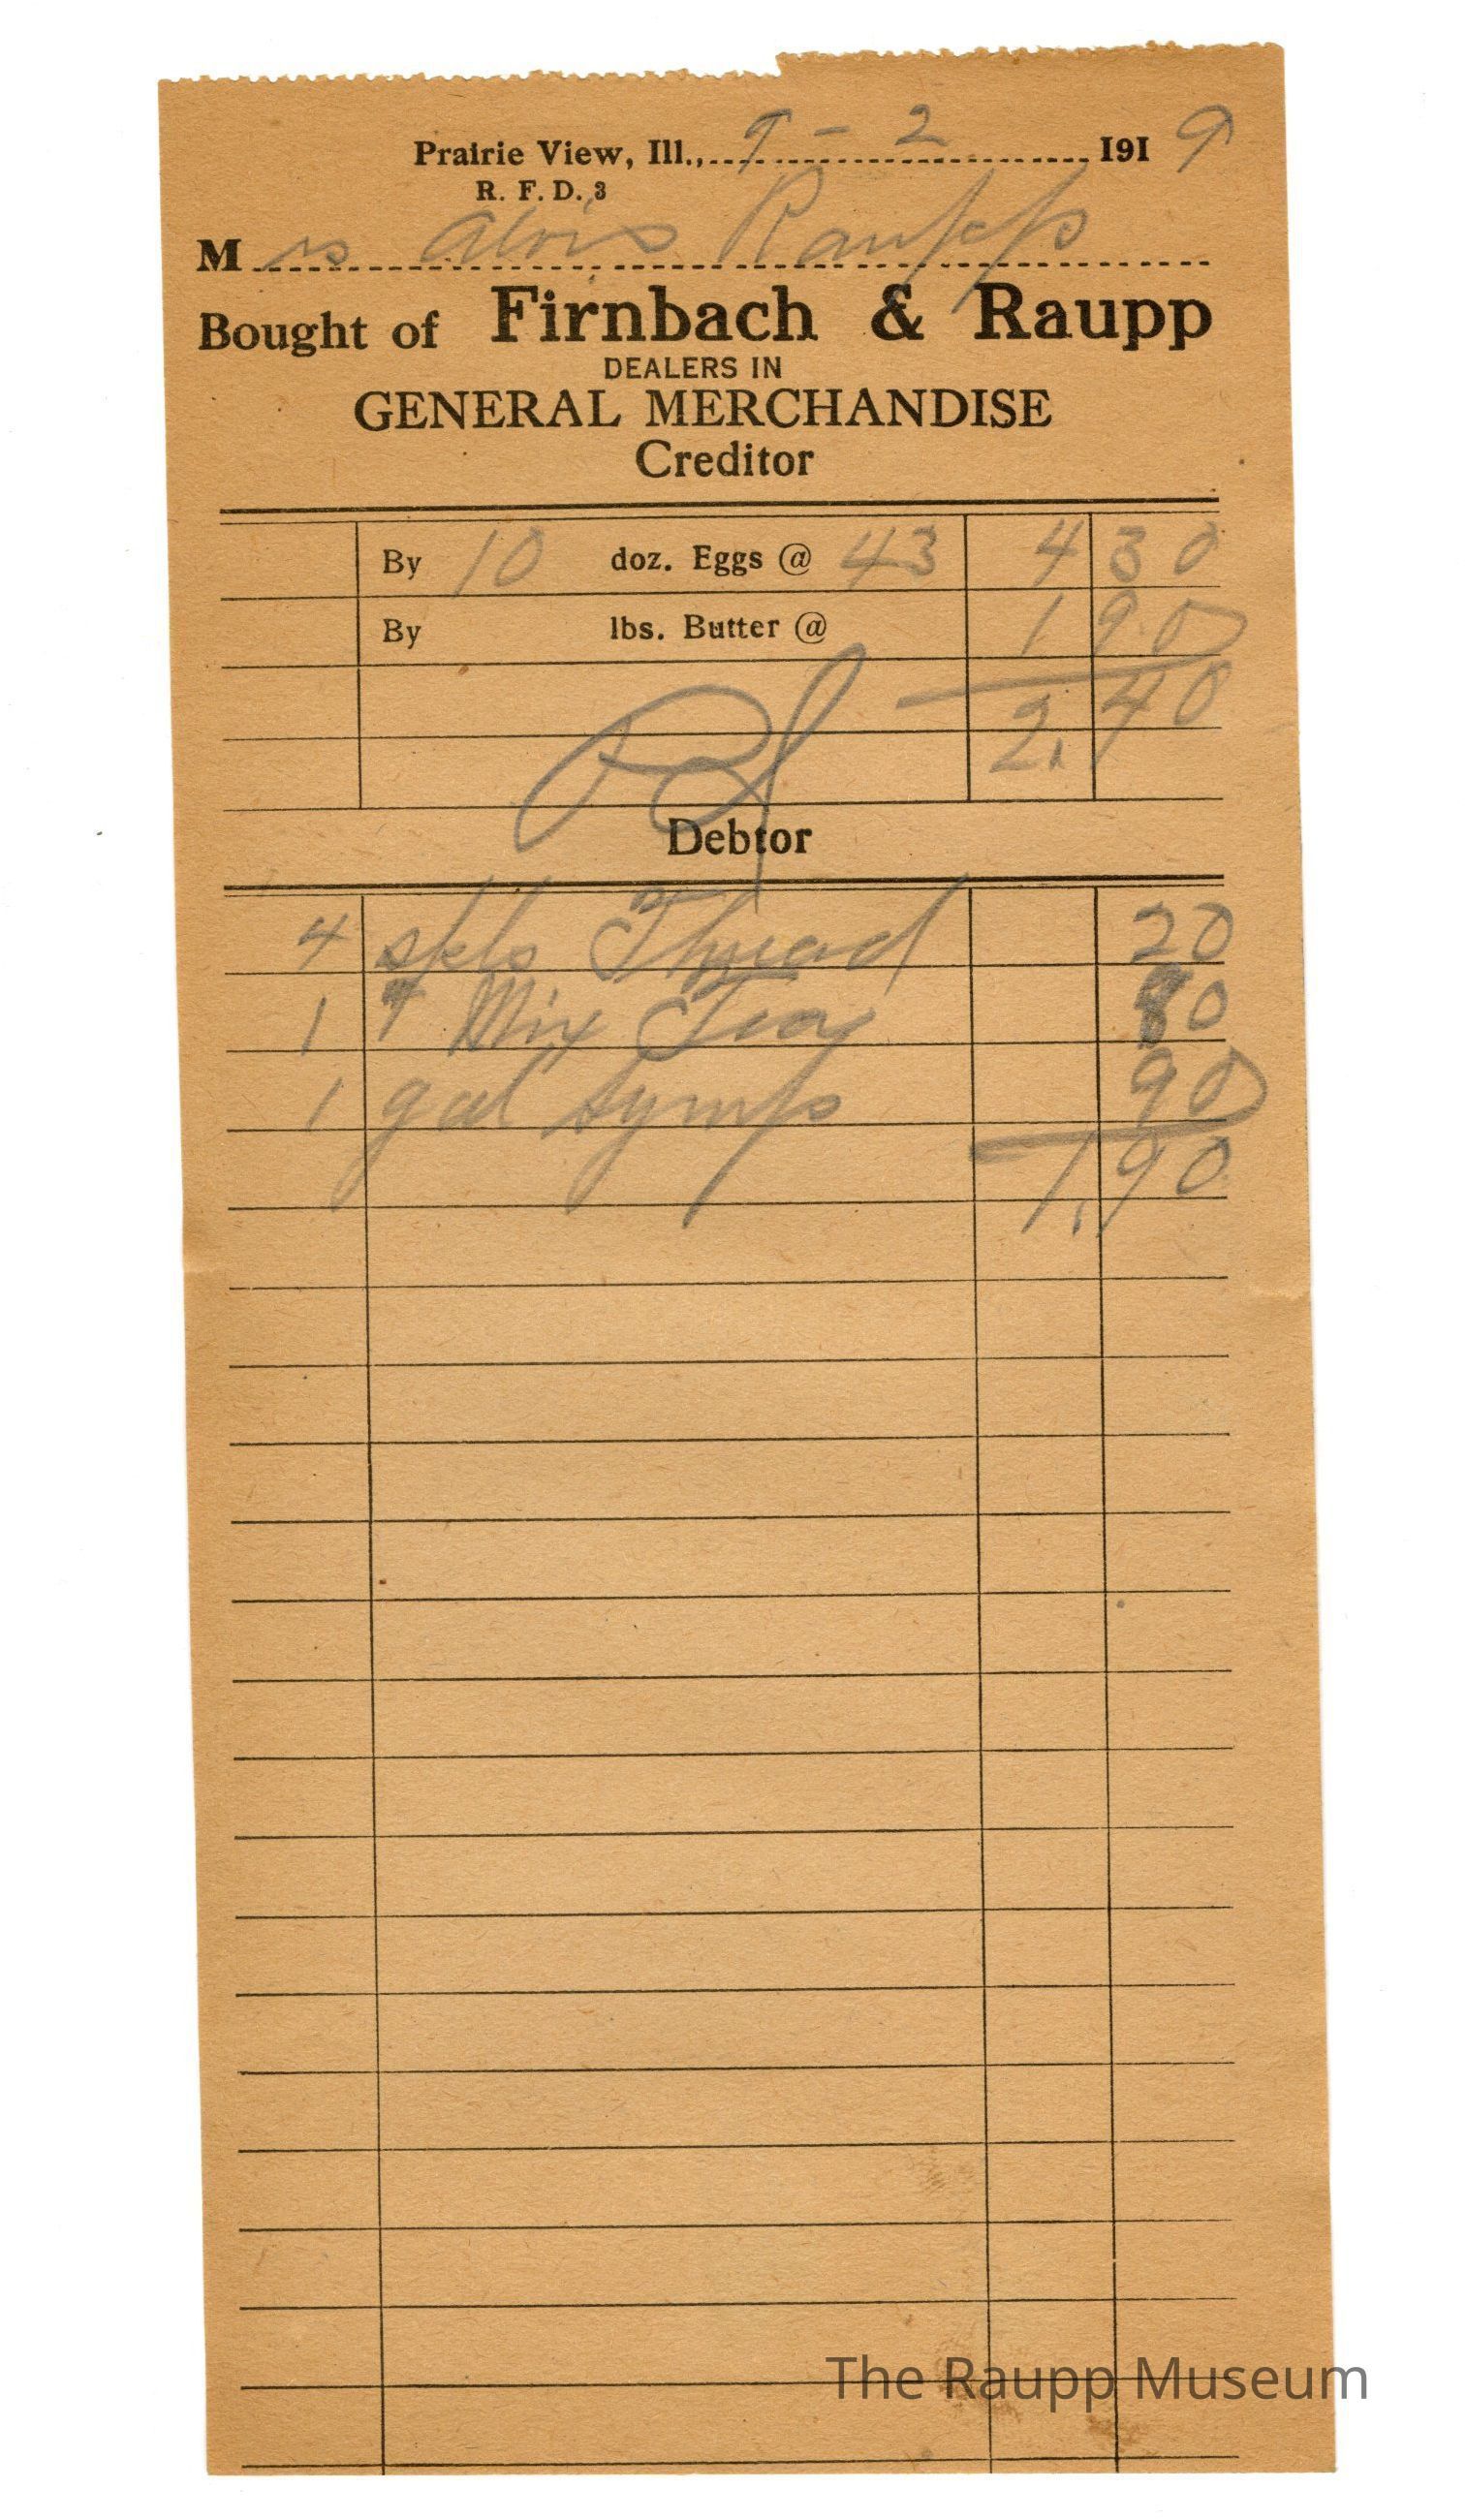 Prairie View, Ill., 9 - 2 1919
R. F. D. 3
Mrs Alois Raupp
Bought of Firnbach & Raupp
DEALERS IN
GENERAL MERCHANDISE
Creditor
By 10 doz. Eggs @ 43 4 30
By lbs. Butter @ 1 90
2.40
Pd
Debtor
4 spls Thread 20
1 # Mix Tea 80
1 gal Syrup 90
1.90
The Raupp Museum